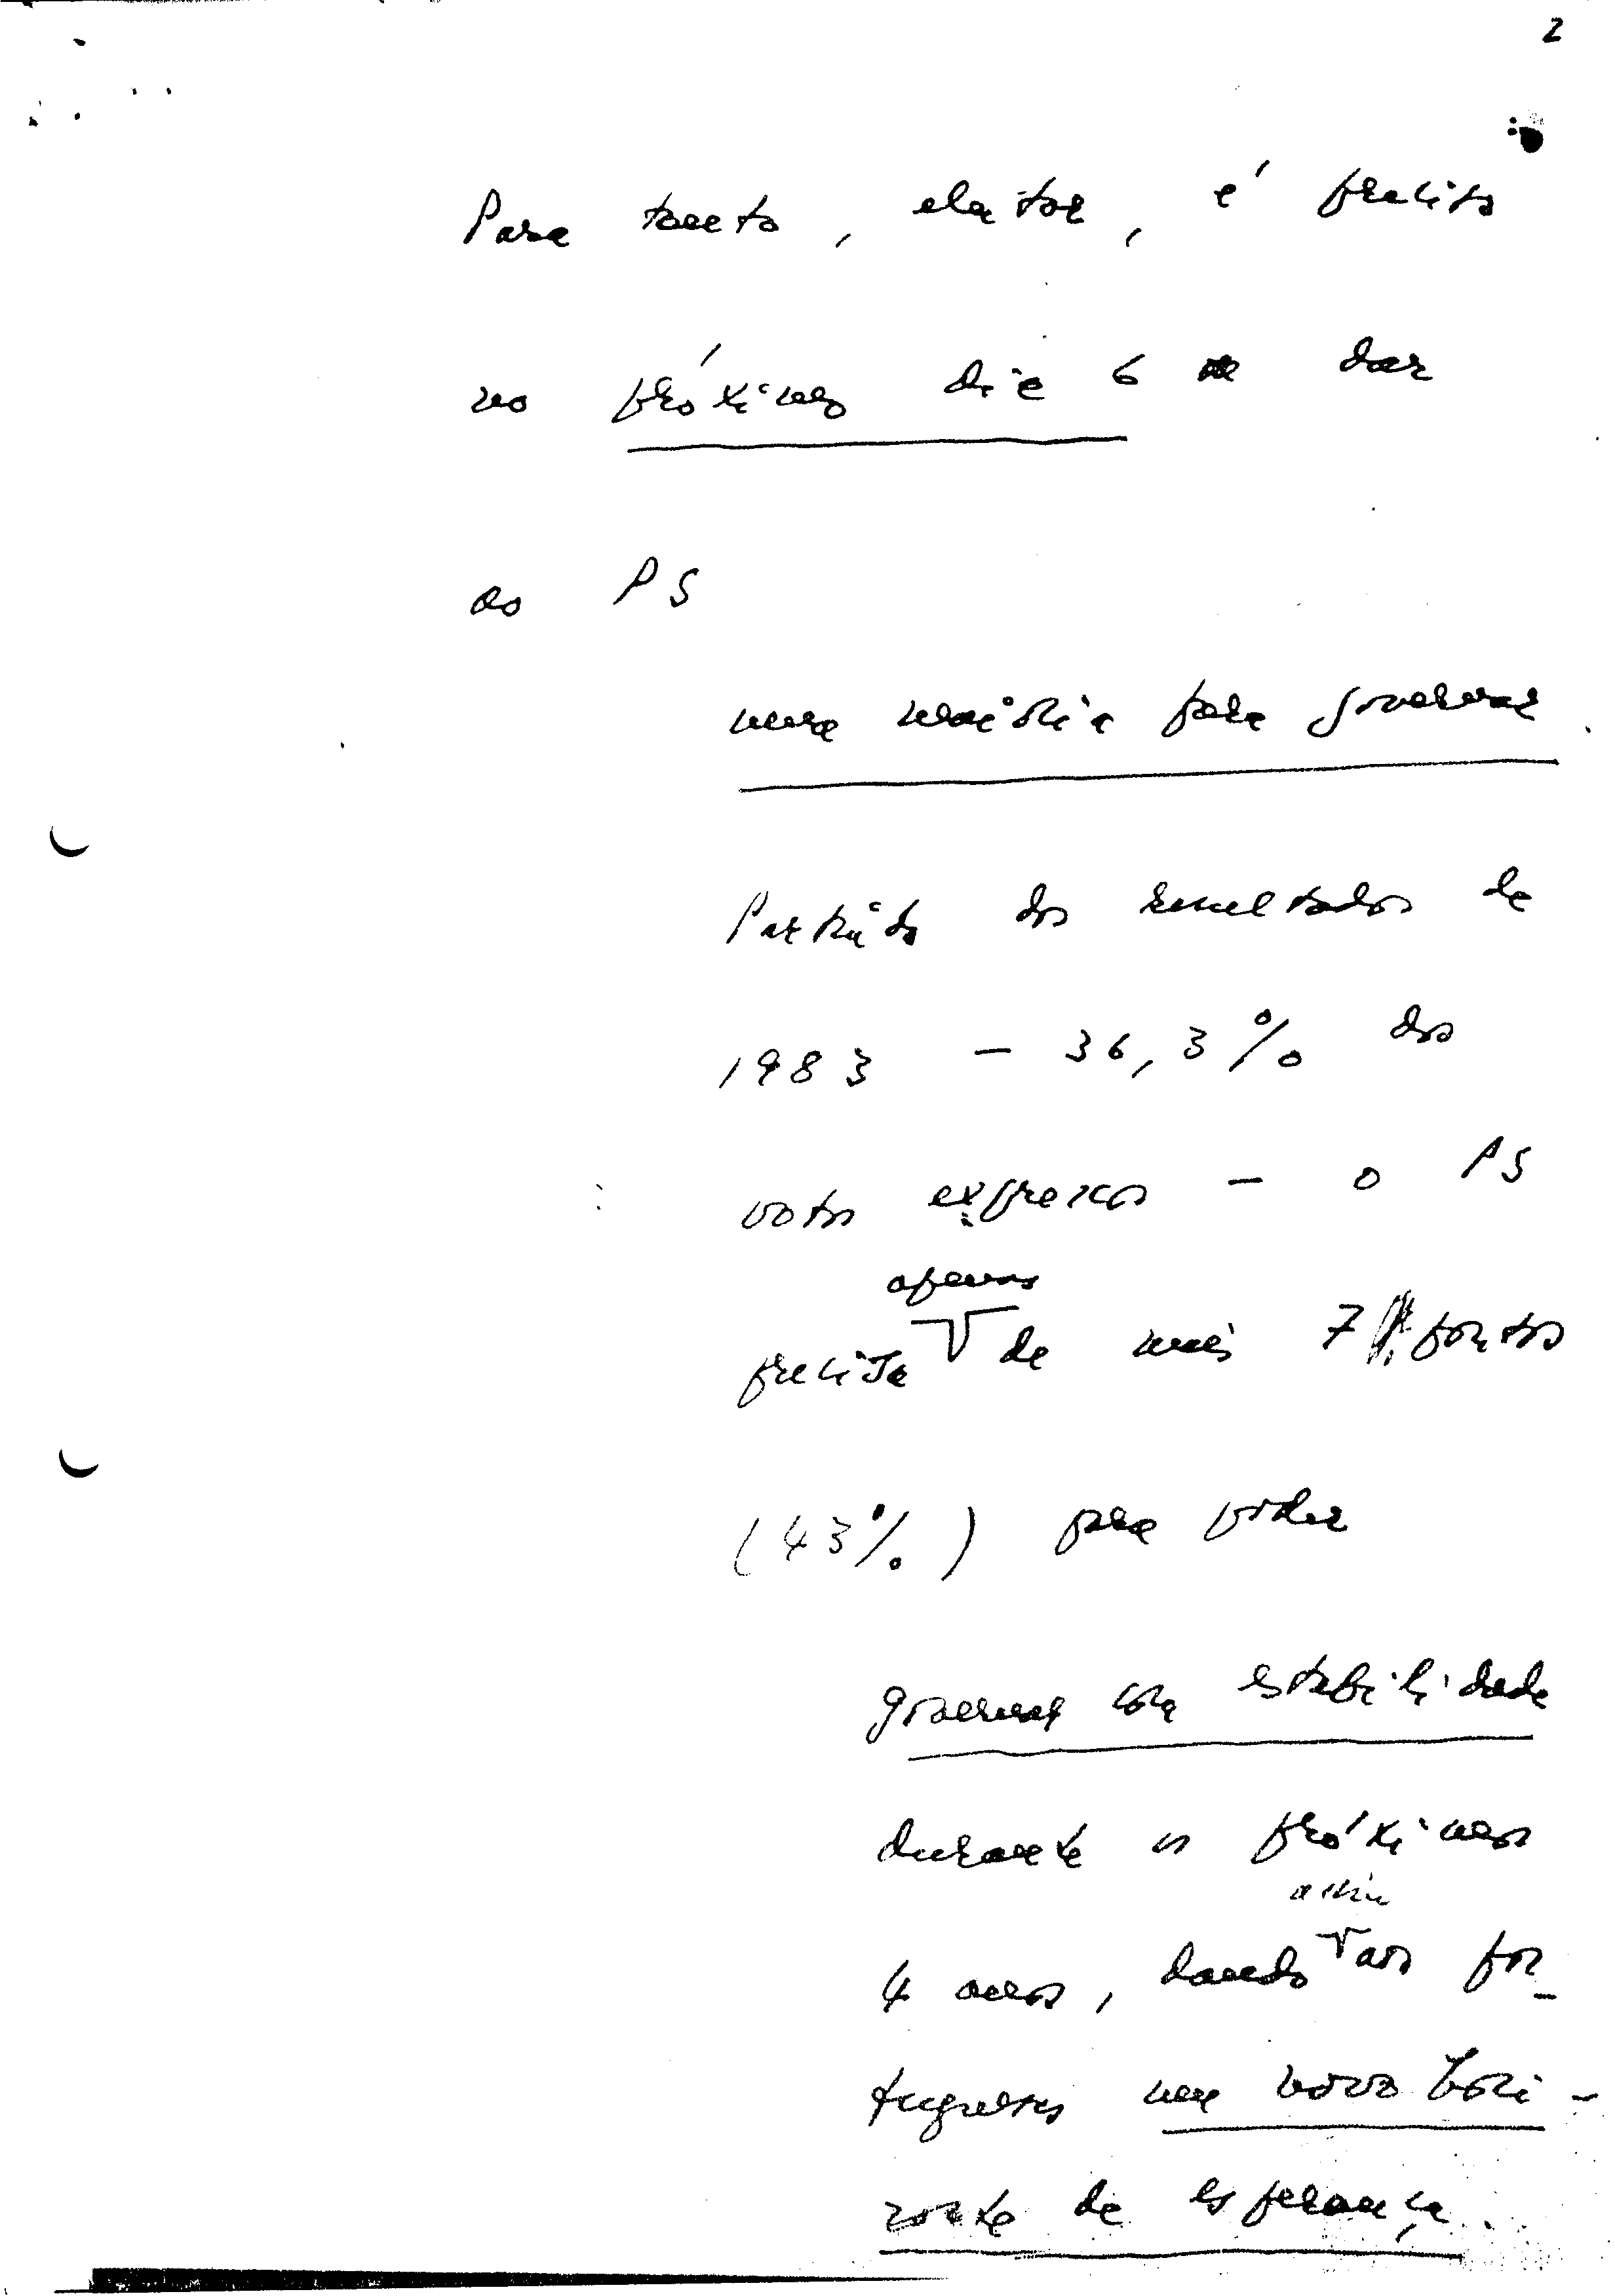 2
Para tanto, eleitor, é preciso
no próximo dia 6 dar
ao PS
uma maioria para governar.
Partindo dos resultados de
1983 - 36,3% dos
votos expressos - o PS
apenas
precisa de mais 7 pontos
(43%) para poder
governar com estabilidade
durante os próximos
assim
4 anos, dando aos por-
tugueses um novo hori-
zonte de esperança.